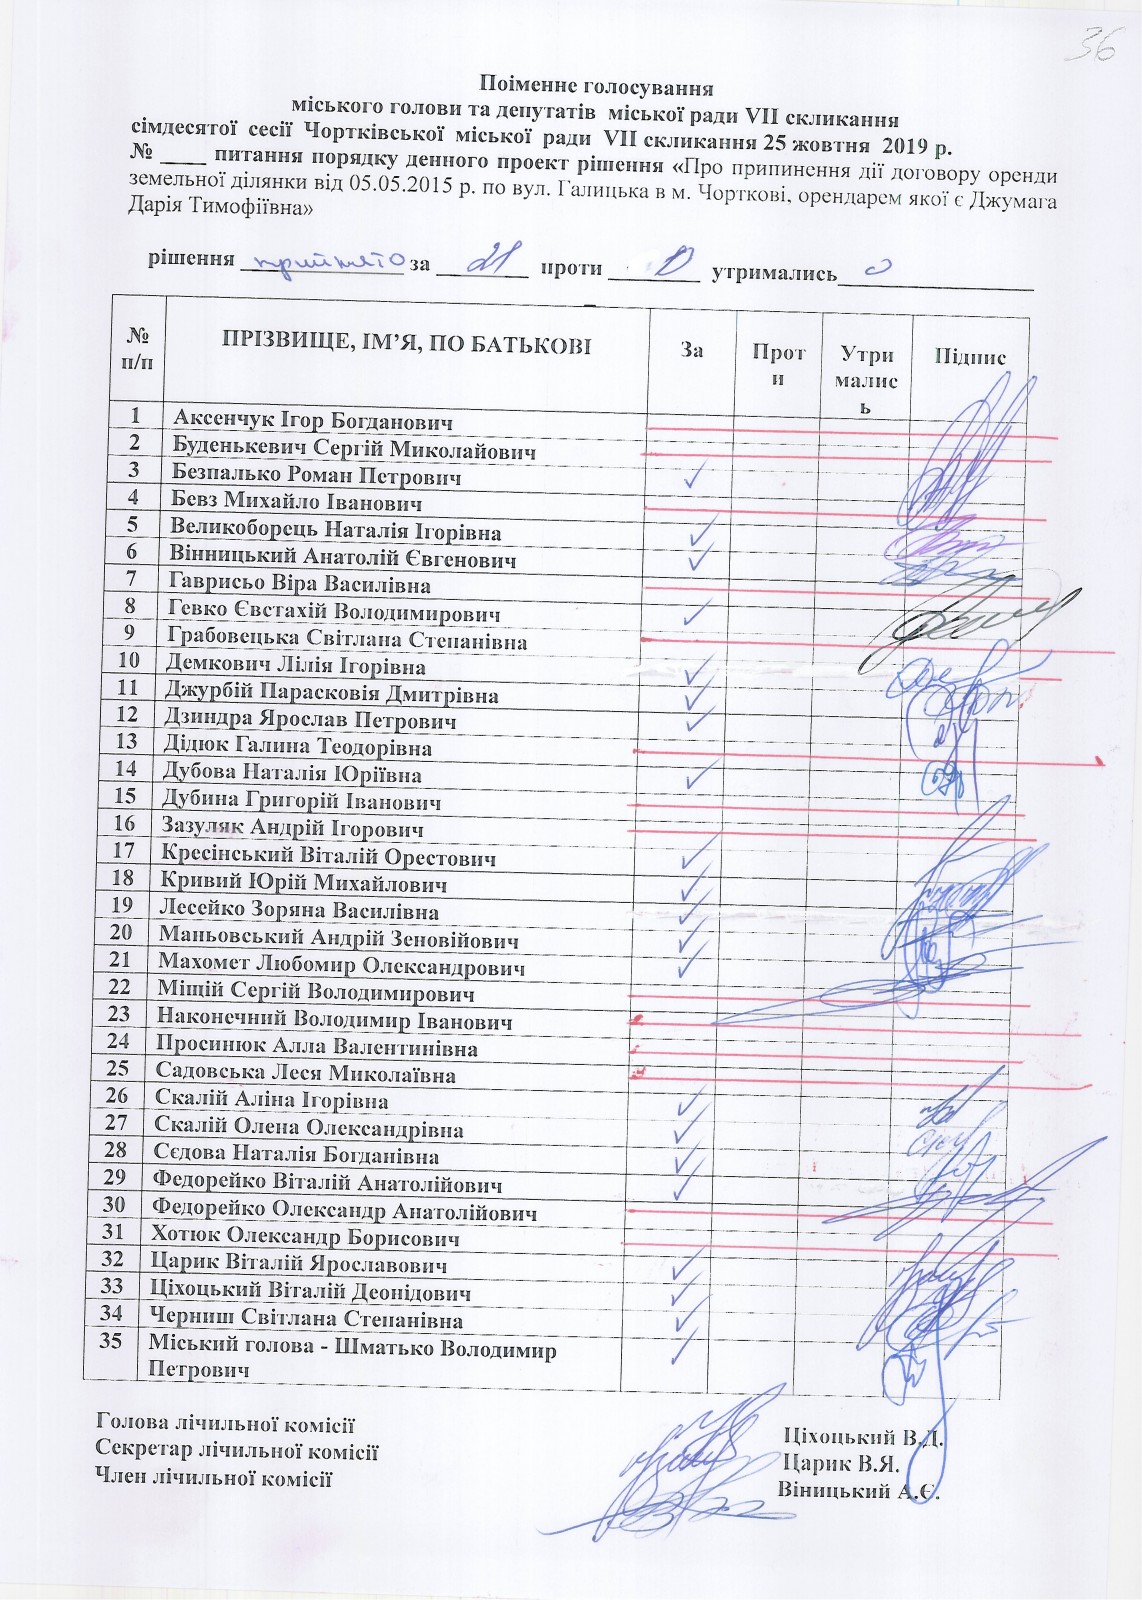 36
Поіменне голосування
міського голови та депутатів міської ради VII скликання
сімдесятої сесії Чортківської міської ради VII скликання 25 жовтня 2019 р.
№ ____ питання порядку денного проект рішення «Про припинення дії договору оренди
земельної ділянки від 05.05.2015 р. по вул. Галицька в м. Чорткові, орендарем якої є Джумага
Дарія Тимофіївна»
рішення прийнято за 21 проти 0 утримались 0
№ п/п ПРІЗВИЩЕ, ІМ’Я, ПО БАТЬКОВІ За Проти Утрималисьь Підпис
1 Аксенчук Ігор Богданович
2 Буденькевич Сергій Миколайович
3 Безпалько Роман Петрович ✓
4 Бевз Михайло Іванович
5 Великоборець Наталія Ігорівна ✓
6 Вінницький Анатолій Євгенович ✓
7 Гаврисьо Віра Василівна
8 Гевко Євстахій Володимирович ✓
9 Грабовецька Світлана Степанівна
10 Демкович Лілія Ігорівна ✓
11 Джурбій Парасковія Дмитрівна ✓
12 Дзиндра Ярослав Петрович ✓
13 Дідюк Галина Теодорівна
14 Дубова Наталія Юріївна ✓
15 Дубина Григорій Іванович
16 Зазуляк Андрій Ігорович
17 Кресінський Віталій Орестович ✓
18 Кривий Юрій Михайлович ✓
19 Лесейко Зоряна Василівна ✓
20 Маньовський Андрій Зеновійович ✓
21 Махомет Любомир Олександрович ✓
22 Міщій Сергій Володимирович
23 Наконечний Володимир Іванович
24 Просинюк Алла Валентинівна
25 Садовська Леся Миколаївна
26 Скалій Аліна Ігорівна ✓
27 Скалій Олена Олександрівна ✓
28 Сєдова Наталія Богданівна ✓
29 Федорейко Віталій Анатолійович ✓
30 Федорейко Олександр Анатолійович
31 Хотюк Олександр Борисович
32 Царик Віталій Ярославович ✓
33 Ціхоцький Віталій Деонідович ✓
34 Черниш Світлана Степанівна ✓
35 Міський голова - Шматько Володимир ✓
Петрович
Голова лічильної комісії Ціхоцький В.Д.
Секретар лічильної комісії Царик В.Я.
Член лічильної комісії Віницький А.Є.